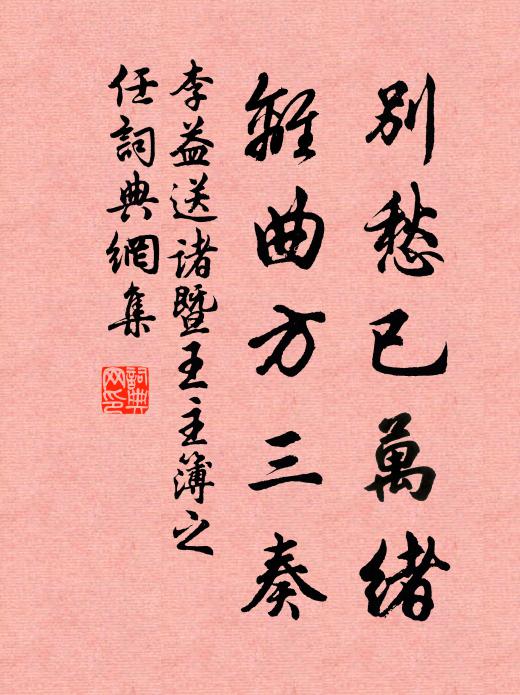 別愁已萬緒
離曲方三奏
李益送諸暨王主簿之
任詞典網集
詞典
網印